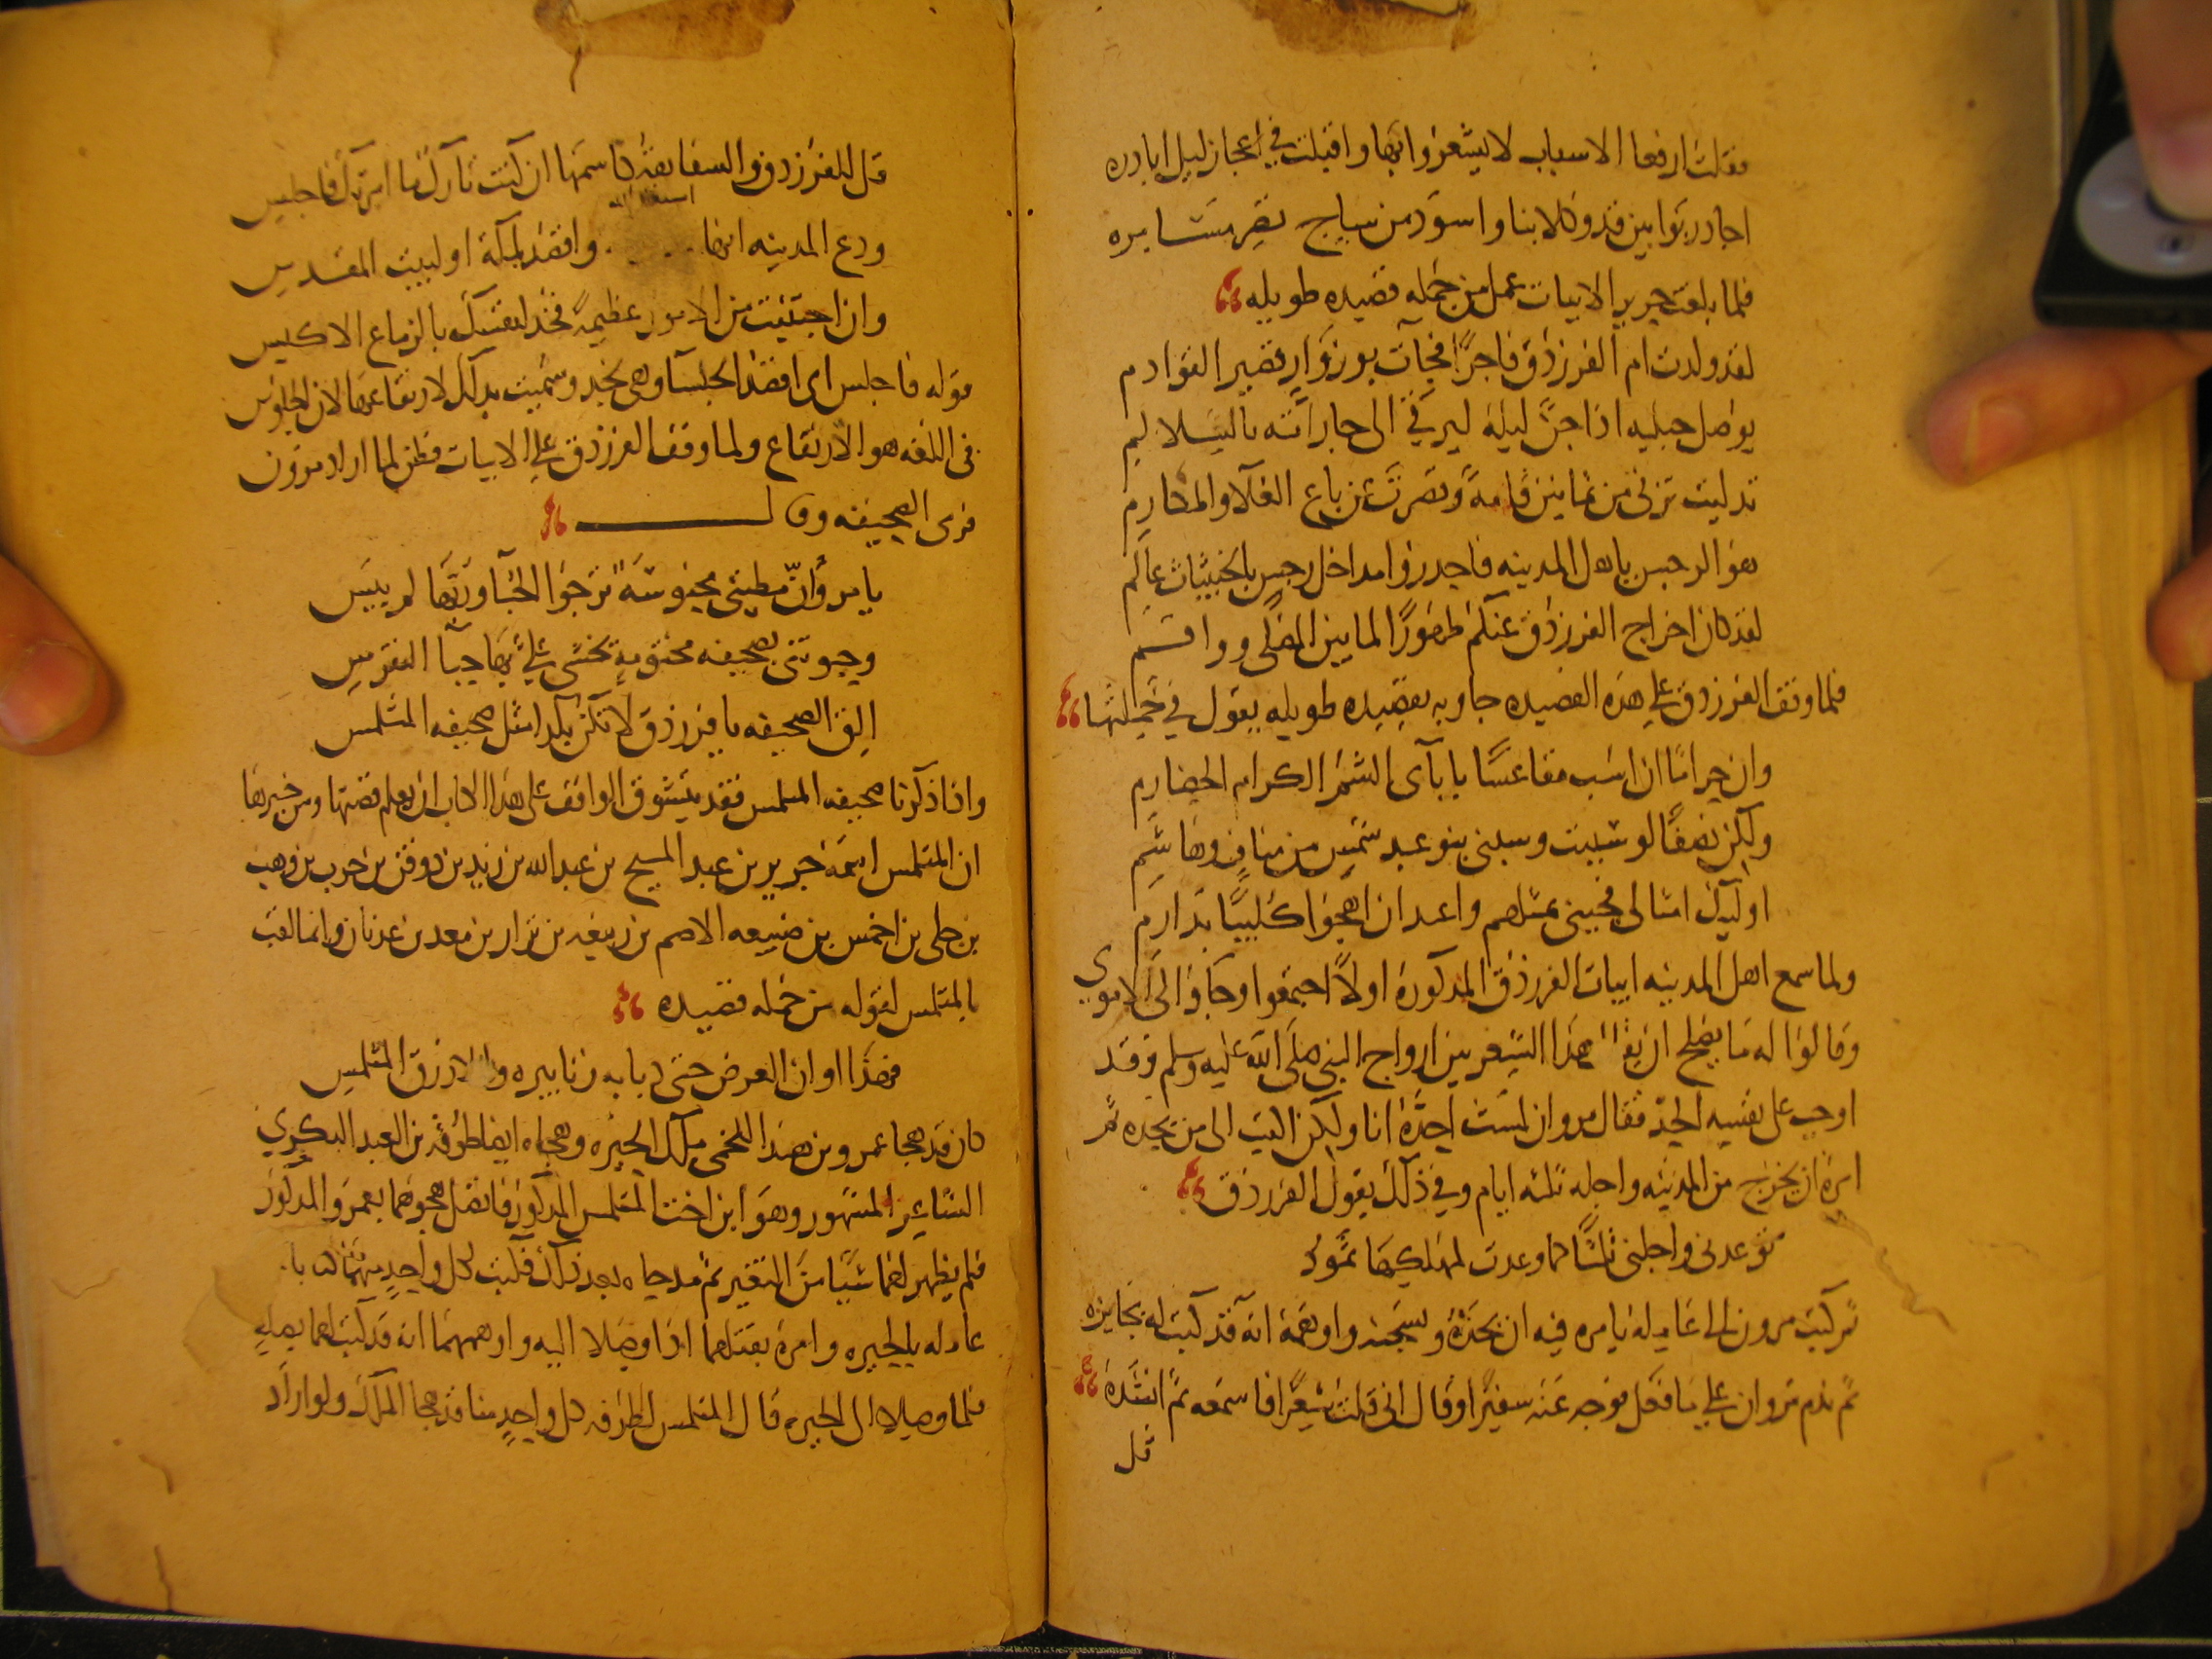 فقلت ارفعا الاسباب لا يشعروا بنا واقبلت في اعجاز ليل ابادره
احاذر بوابين قد وكلا بنا واسود من ساج تصر مسامره
فلما بلغت جرير الابيات عمل من جمله قصيده طويله
لقد ولدت ام الفرزدق فاجرًا فجآت بوزوازٍ قصير القوادم
يوصل حبليه اذا جنّ ليله ليرقى الى جاراته بالسلالم
تدليت تزني من ثمانين قامةً وقصرت عن باع العلآ والمكارم
هو الرجس يا اهل المدينه فاحذروا مداخل رجس بالخبيثات عالم
لقد كان اخراج الفرزدق عنكم طهورًا لما بين المصلى وواقم
فلما وقف الفرزدق على هذه القصيده جاوبه بقصيده طويله يقول في جملتها
وان حرامًا ان اسب مقاعسًا بابآى الشم الكرام الخضارم
ولكن نصفًا لو سببت وسبني بنو عبد شمس من مناف وهاشم
اوليك امثالي فجيني بمثلهم واعبد ان اهجوا كليبًا بدارم
ولما سمع اهل المدينه ابيات الفرزدق المذكورة اولًا اجتمعوا وجآوا الى الاموى
وقالوا له ما يصلح ان يقال هذا الشعر بين ازواج النبي صلى الله عليه وسلم وقد
اوجب على نفسه الحد فقال مروان لست احدّه انا ولكن اكتب الى من يحده ثم
امره ان يخرج من المدينه واجله ثلثه ايام وفي ذلك يقول الفرزدق
توعدني واجلني ثلثًا كما وعدت لمهلكها ثمود
ثم كتب مرون الى عامله يامره فيه ان يحده ويسجنه واوهمه انه قد كتب له بجايزه
ثم ندم مروان على ما فعل فوجه عنه سفيرًا وقال اني قلت شعرًا فاسمعه ثم انشده
قل
قل للفرزدق والسفاهة كاسمها ان كنت تارك ما امرتك فاجلس
ودع المدينه انها واقصد لمكة او لبيت المقدس
وان اجتنيت من الامور عظيمةً فخذ لنفسك بالزماع الاكيس
قوله فاجلس اى اقصد الجلسآ وهى نجد وسميت بذلك لارتفاعها لان الجلوس
فى اللغه هو الارتفاع ولما وقف الفرزدق على الابيات فطن لما اراد مروان
فرمى الصحيفه وقال
يا مروُ انّ مطيتي محبوسةً ترجوا الحبآ وربها لم يياس
وحبوتني بصحيفه مختومةٍ يخشى عليّ بها حبآ النقرس
الق الصحيفه يا فرزدق لا تكن نكدا مثل صحيفه المتلمس
واذا ذكرنا صحيفه المتلمس فقد يتشوق الواقف على هذا الكتاب ان يعلم قصتها ومن خبرها
ان المتلمس اسمه جرير بن عبد المسيح بن عبد الله بن زيد بن دوفن بن حرب بن وهب
بن جلى بن احمس بن ضبيعه الاصم بن ربيعه بن نزار بن معد بن عدنان وانما لقب
بالمتلمس لقوله من جمله قصيده
فهذا اوان العرض حتى ذبابه زنابيره والازرق المتلمس
كان قد هجا عمرو بن هند اللخمى ملك الحيره وهجاه ايضا طرفه بن العبد البكري
الشاعر المشهور وهو ابن اخت المتلمس المذكور فاتصل هجوهما بعمرو المذكور
فلم يظهر لهما شيًا من التغير ثم مدحاه بعد ذلك فكتب لكل واحدٍ منهما كتابا
عامله بالحيره وامره بقتلهما اذا وصلا اليه واوهمهما انه قد كتب لهما بصلهٍ
فلما وصلا الى الحيره قال المتلمس لطرفه كل واحدٍ منا قد هجا الملك ولو اراد